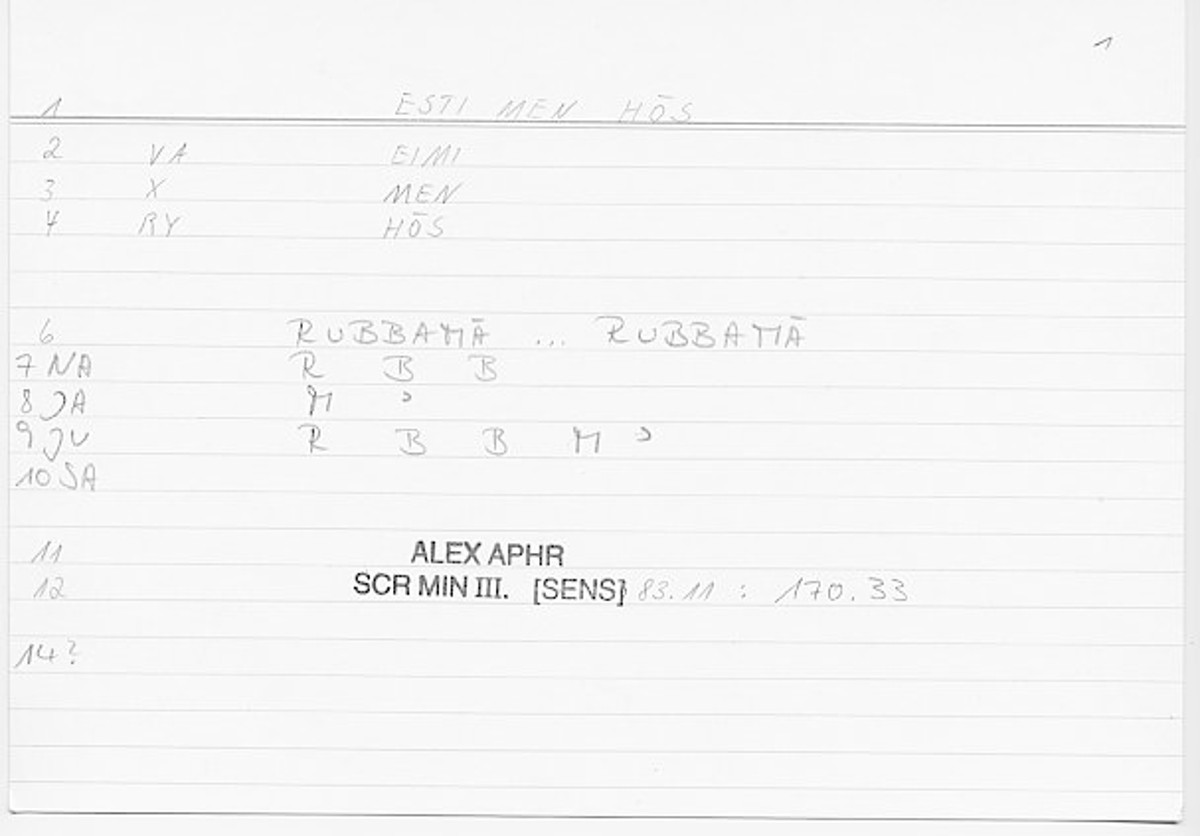 1
1 ESTI MEN HŌS
2 VA EIMI
3 X MEN
4 RY HŌS
6 RUBBAMĀ ... RUBBAMĀ
7 NA R B B
8 JA M ʾ
9 JU R B B M ʾ
10 SA
11 ALEX APHR
12 SCR MIN III. [SENS] 83.11 : 170.33
14?